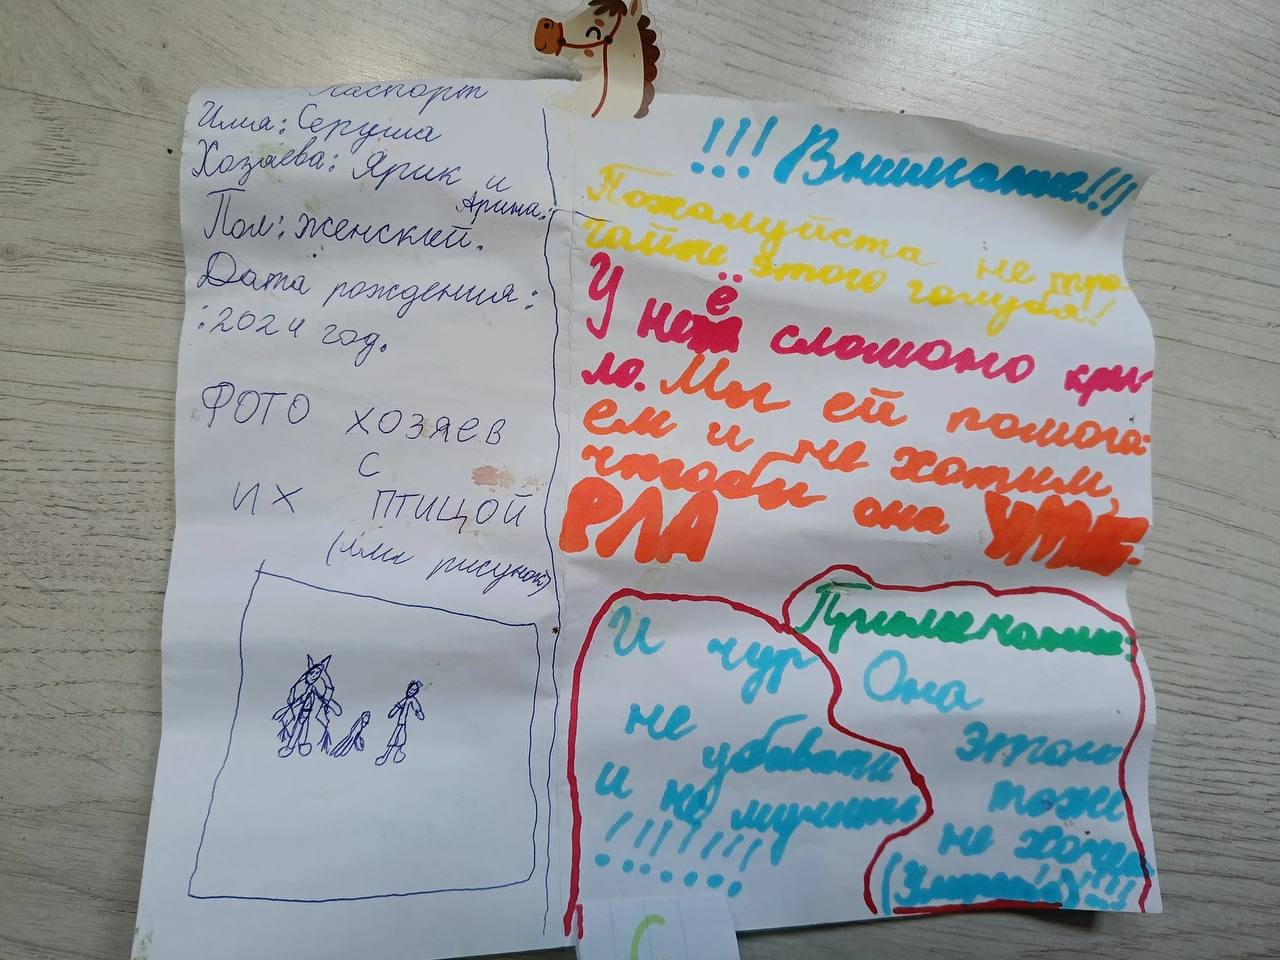 Паспорт
Имя: Серуша
Хозаева: Ярик и
Арина:
Пол: женский.
Дата рождения:
:2024 год.
ФОТО ХОЗЯЕВ
С
ИХ ПТИЦОЙ
(или рисунок)
!!! Внимание!!!
Пожалуйста не тро-
гайте этого голубя!
У неё сломоно кры-
ло. Мы ей помога-
ем и не хотим,
чтобы она УМЕ-
РЛА
И чур
не убивати
и не мучить
!!!!!!!
Примечание:
Она
этого
тоже
не хочет
(Умереть)!!!